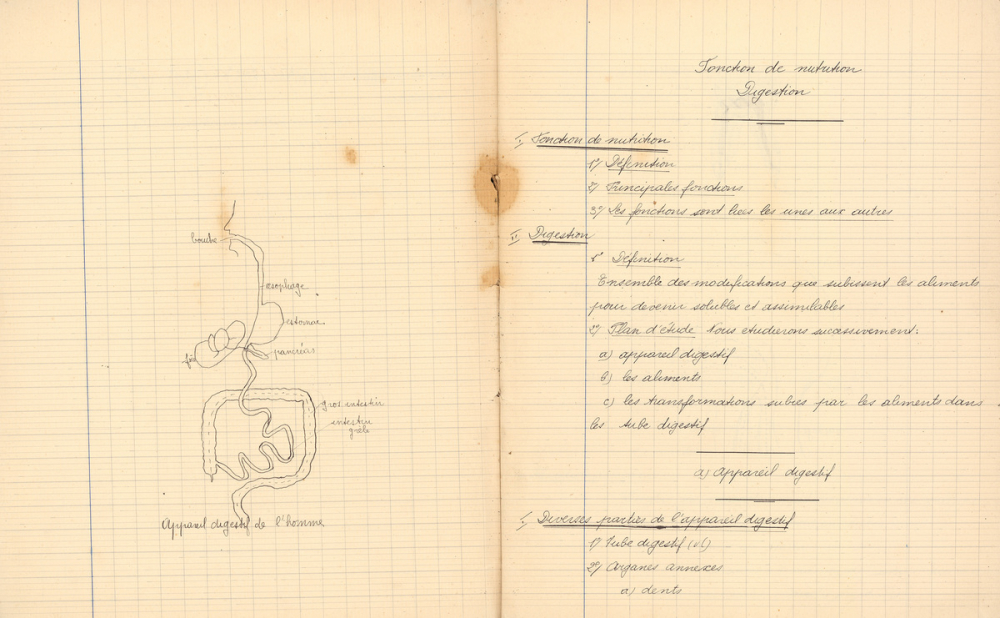 bouche
œsophage
estomac
pancréas
foie
gros intestin
intestin
grèle
Appareil digestif de l'homme
Fonction de nutrition
Digestion
I. Fonction de nutrition
1°/ Définition
2°/ Principales fonctions
3°/ Les fonctions sont liées les unes aux autres
II. Digestion
1° Définition
Ensemble des modifications que subissent les aliments
pour devenir solubles et assimilables
2°/ Plan d'étude Nous etudierons successivement:
a) appareil digestif
b) les aliments
c) les transformations subies par les aliments dans
les tube digestif
a) Appareil digestif
I. Diverses parties de l'appareil digestif
1°/ Tube digestif
2°/ Organes annexes
a) dents